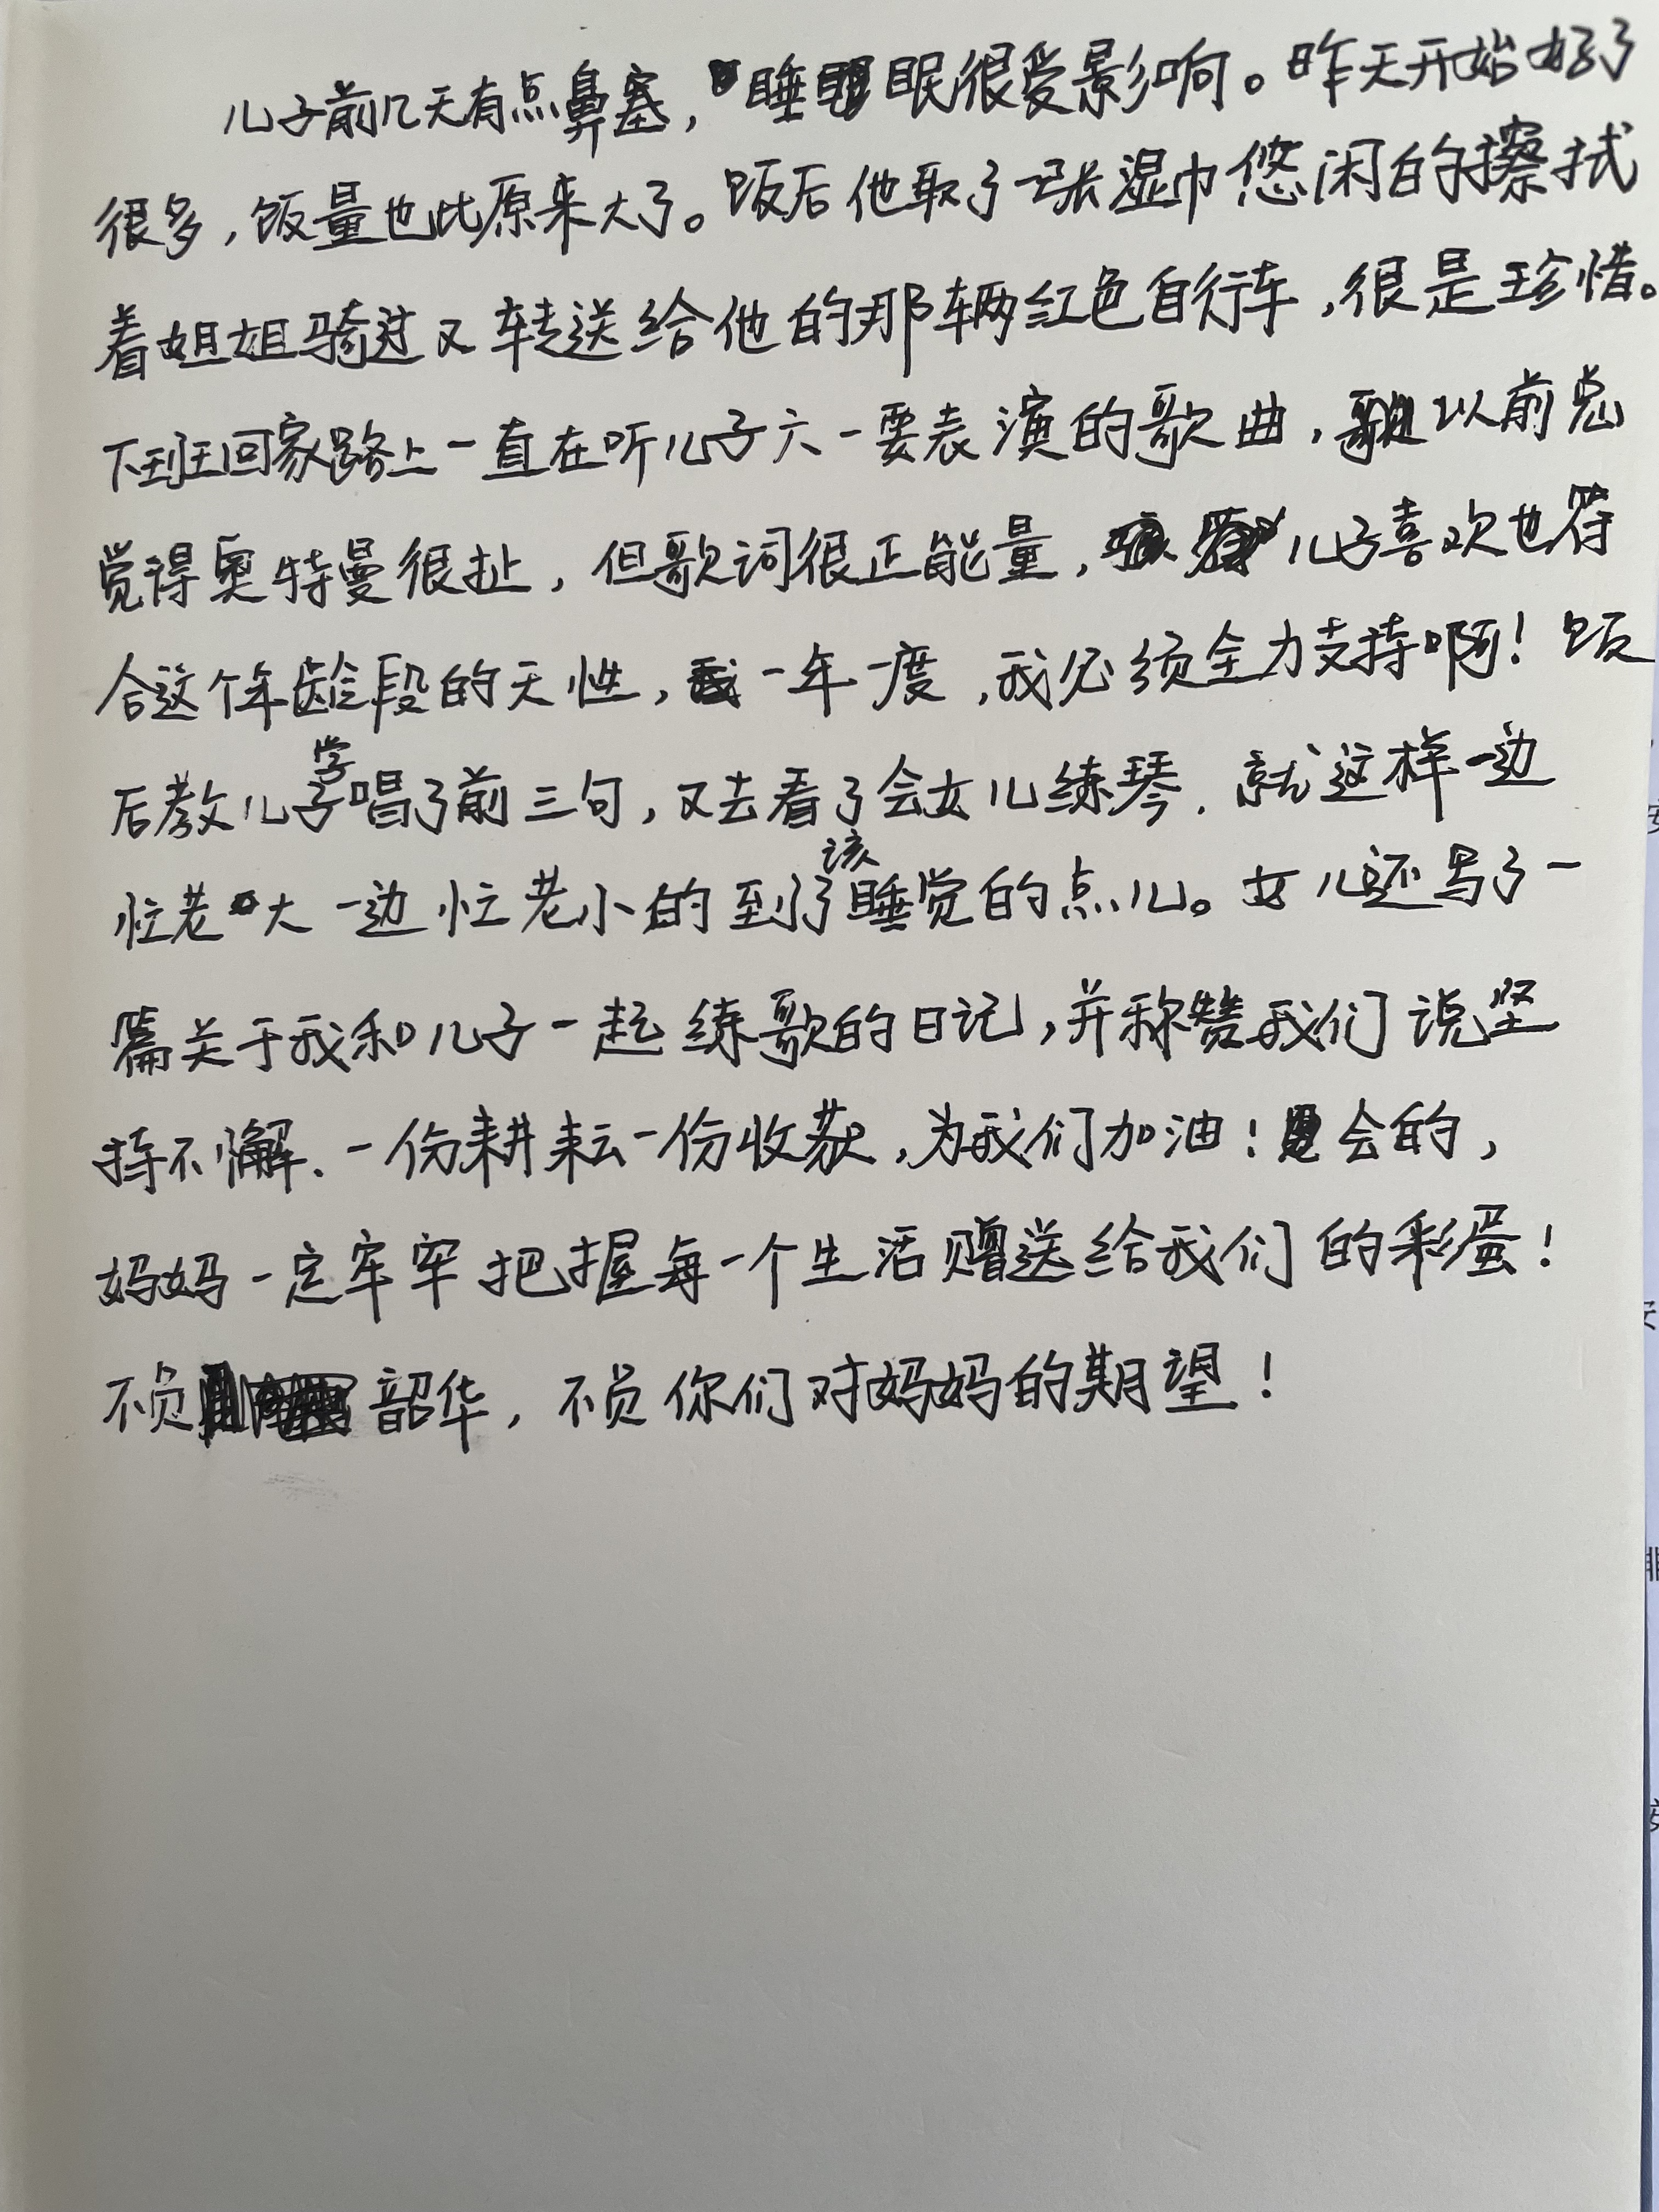 儿子前几天有点鼻塞，睡眠很受影响。昨天开始好了
很多，饭量也比原来大了。饭后他取了一张湿巾悠闲的擦拭
着姐姐骑过又转送给他的那辆红色自行车，很是珍惜。
下班回家路上一直在听儿子六一要表演的歌曲，以前总
觉得奥特曼很扯，但歌词很正能量，儿子喜欢也符
合这个年龄段的天性，一年一度，我必须全力支持啊！饭
后教儿子学唱了前三句，又去看了会女儿练琴，就这样一边
忙老大一边忙老小的到了该睡觉的点儿。女儿还写了一
篇关于我和儿子一起练歌的日记，并称赞我们说坚
持不懈、一份耕耘一份收获，为我们加油！会的，
妈妈一定牢牢把握每一个生活赠送给我们的彩蛋！
不负韶华，不负你们对妈妈的期望！